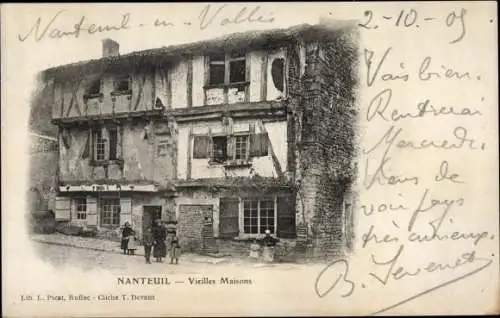 Nanteuil - en - Vallée
2-10-05
Vais bien.
Rentrerai
Mercredi.
Gens de
pays
très curieux.
B
NANTEUIL — Vieilles Maisons
Lib. L. Picat, Ruffec - Cliché T. Devant